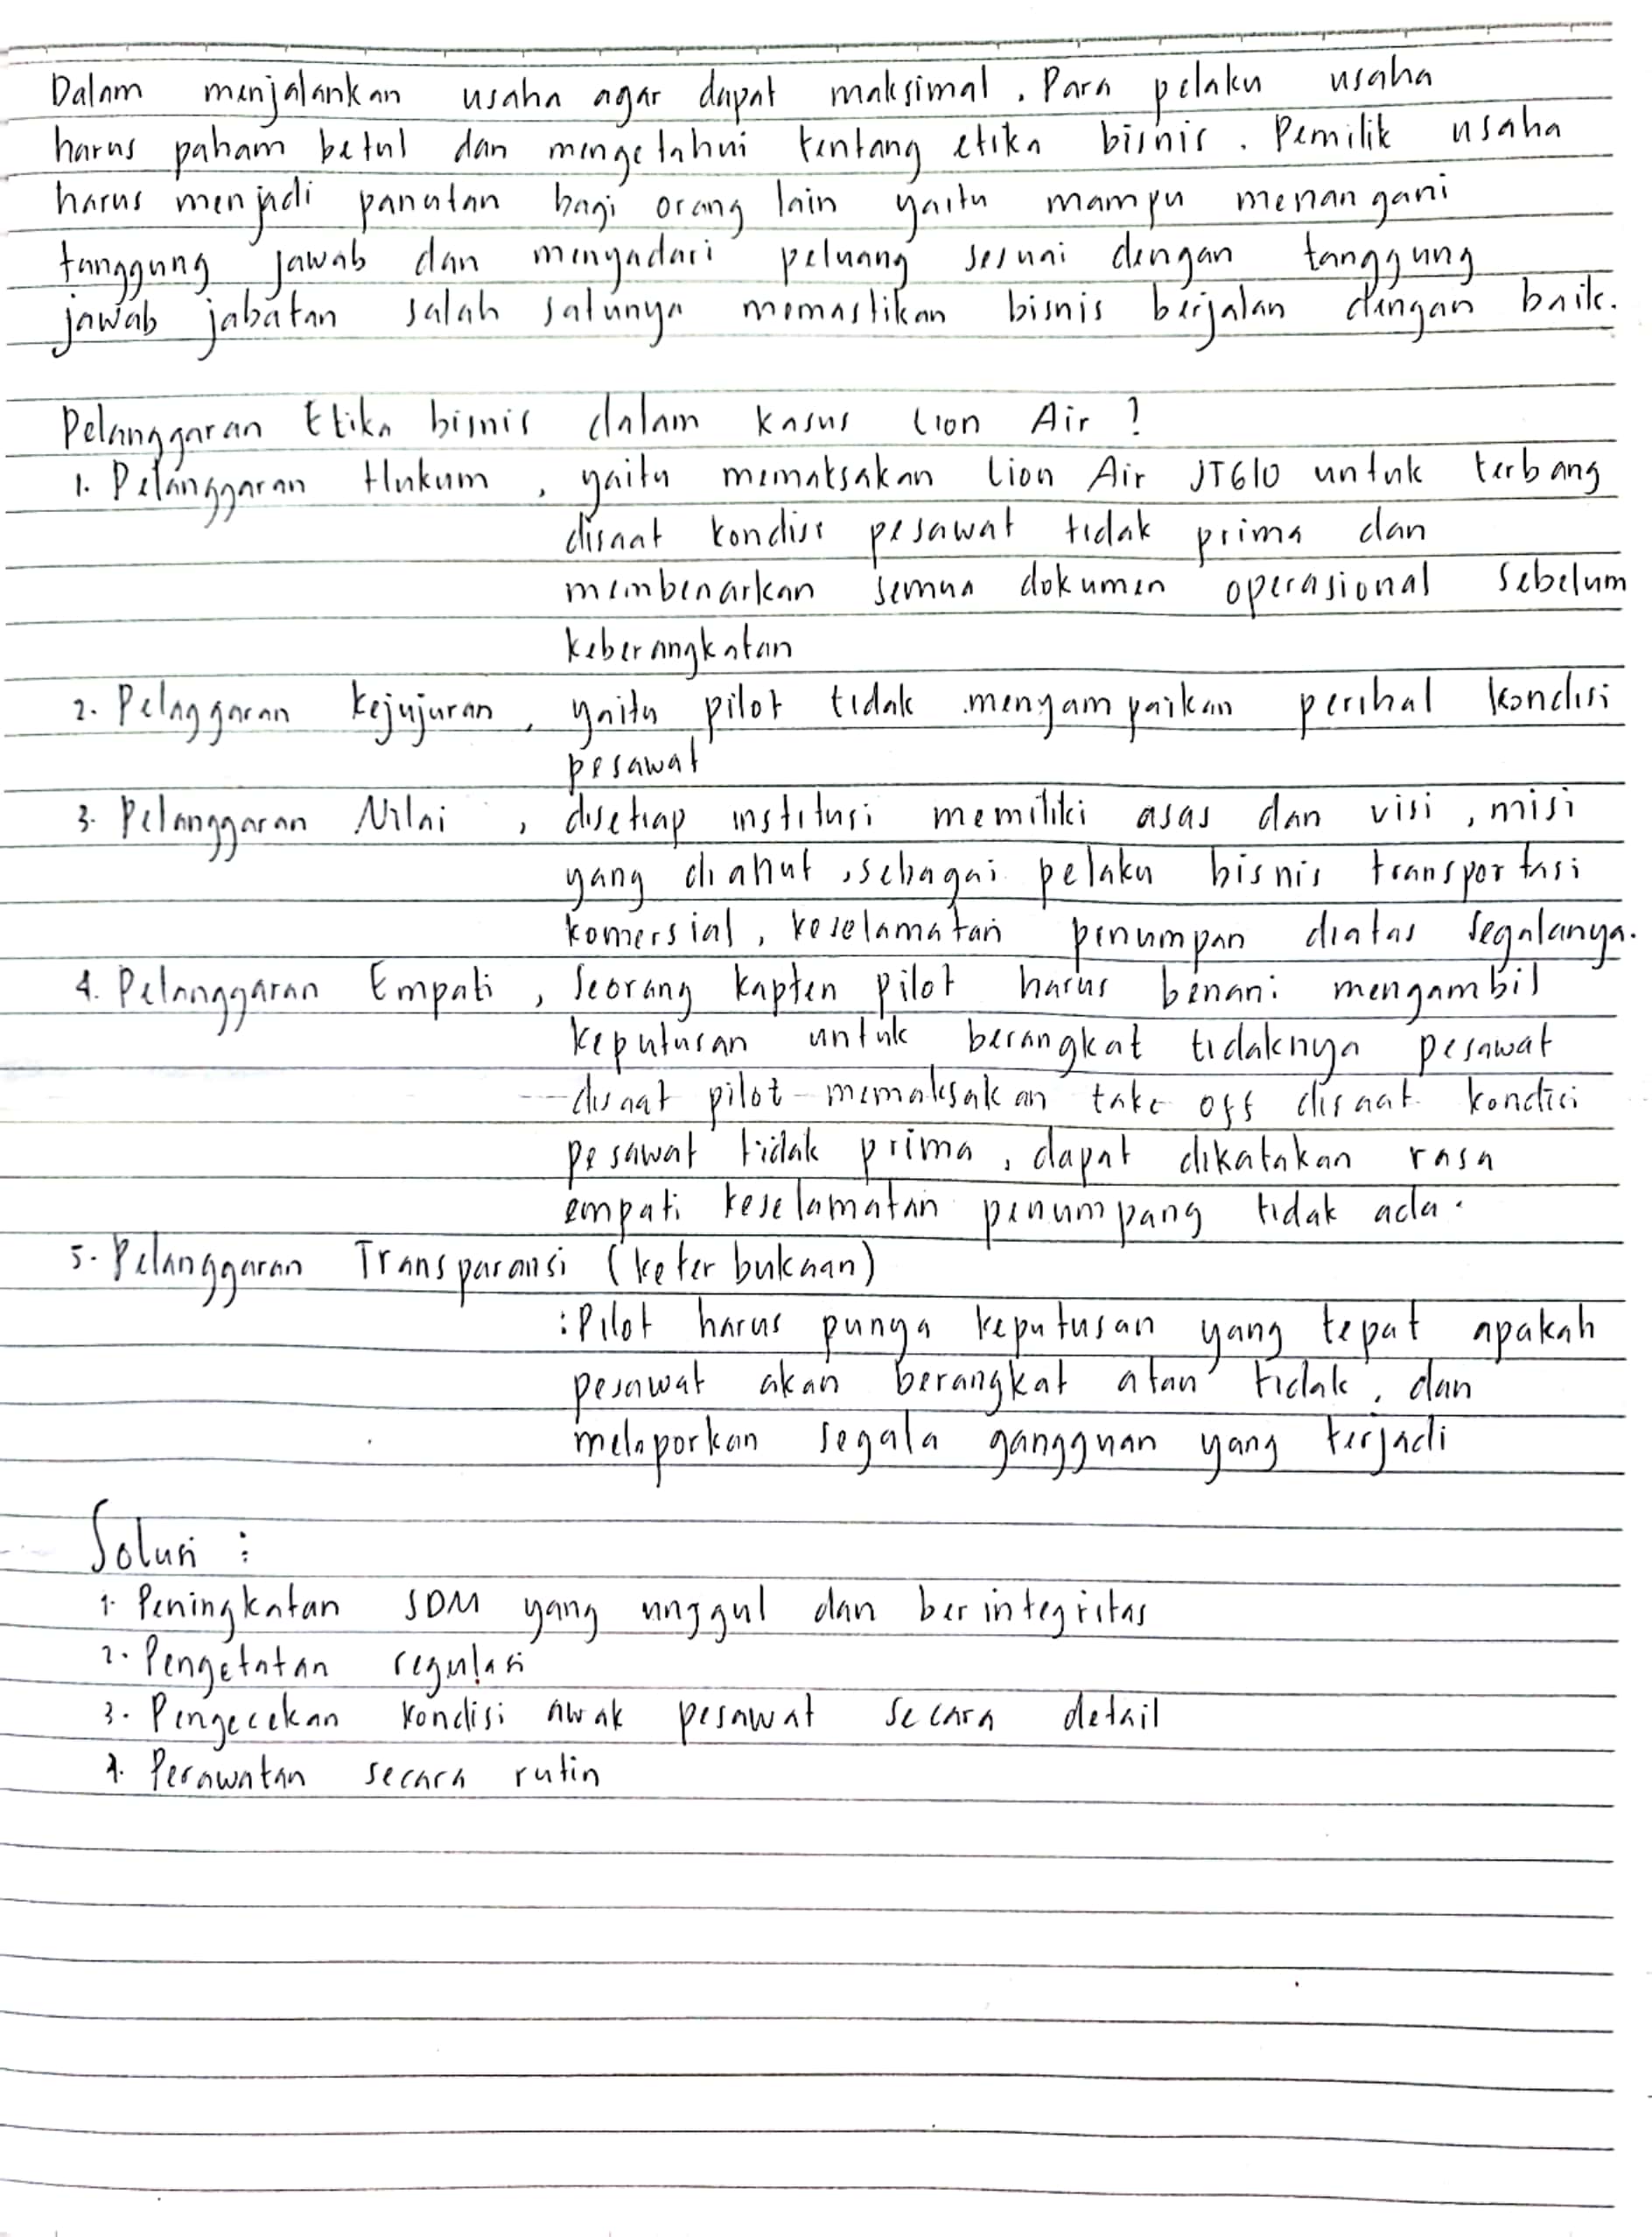 Dalam menjalankan usaha agar dapat maksimal. Para pelaku usaha
harus paham betul dan mengetahui tentang etika bisnis. Pemilik usaha
harus menjadi panutan bagi orang lain yaitu mampu menangani
tanggung jawab dan menyadari peluang sesuai dengan tanggung
jawab jabatan salah satunya memastikan bisnis berjalan dengan baik.
Pelanggaran Etika bisnis dalam kasus Lion Air ?
1. Pelanggaran Hukum, yaitu memaksakan Lion Air JT610 untuk terbang
disaat kondisi pesawat tidak prima dan
membenarkan semua dokumen operasional sebelum
keberangkatan
2. Pelaggaran kejujuran, yaitu pilot tidak menyampaikan perihal kondisi
pesawat
3. Pelanggaran Nilai, disetiap institusi memiliki asas dan visi, misi
yang dianut, sebagai pelaku bisnis transportasi
komersial, keselamatan penumpan diatas segalanya.
4. Pelanggaran Empati, Seorang kapten pilot harus benani mengambil
keputusan untuk berangkat tidaknya pesawat
disaat pilot memaksakan take off disaat kondisi
pesawat tidak prima, dapat dikatakan rasa
empati keselamatan penumpang tidak ada.
5. Pelanggaran Transparansi (keterbukaan)
: Pilot harus punya keputusan yang tepat apakah
pesawat akan berangkat atau tidak, dan
melaporkan segala gangguan yang terjadi
Solusi :
1. Peningkatan SDM yang unggul dan berintegritas
2. Pengetatan regulasi
3. Pengecekan kondisi awak pesawat secara detail
4. Perawatan secara rutin